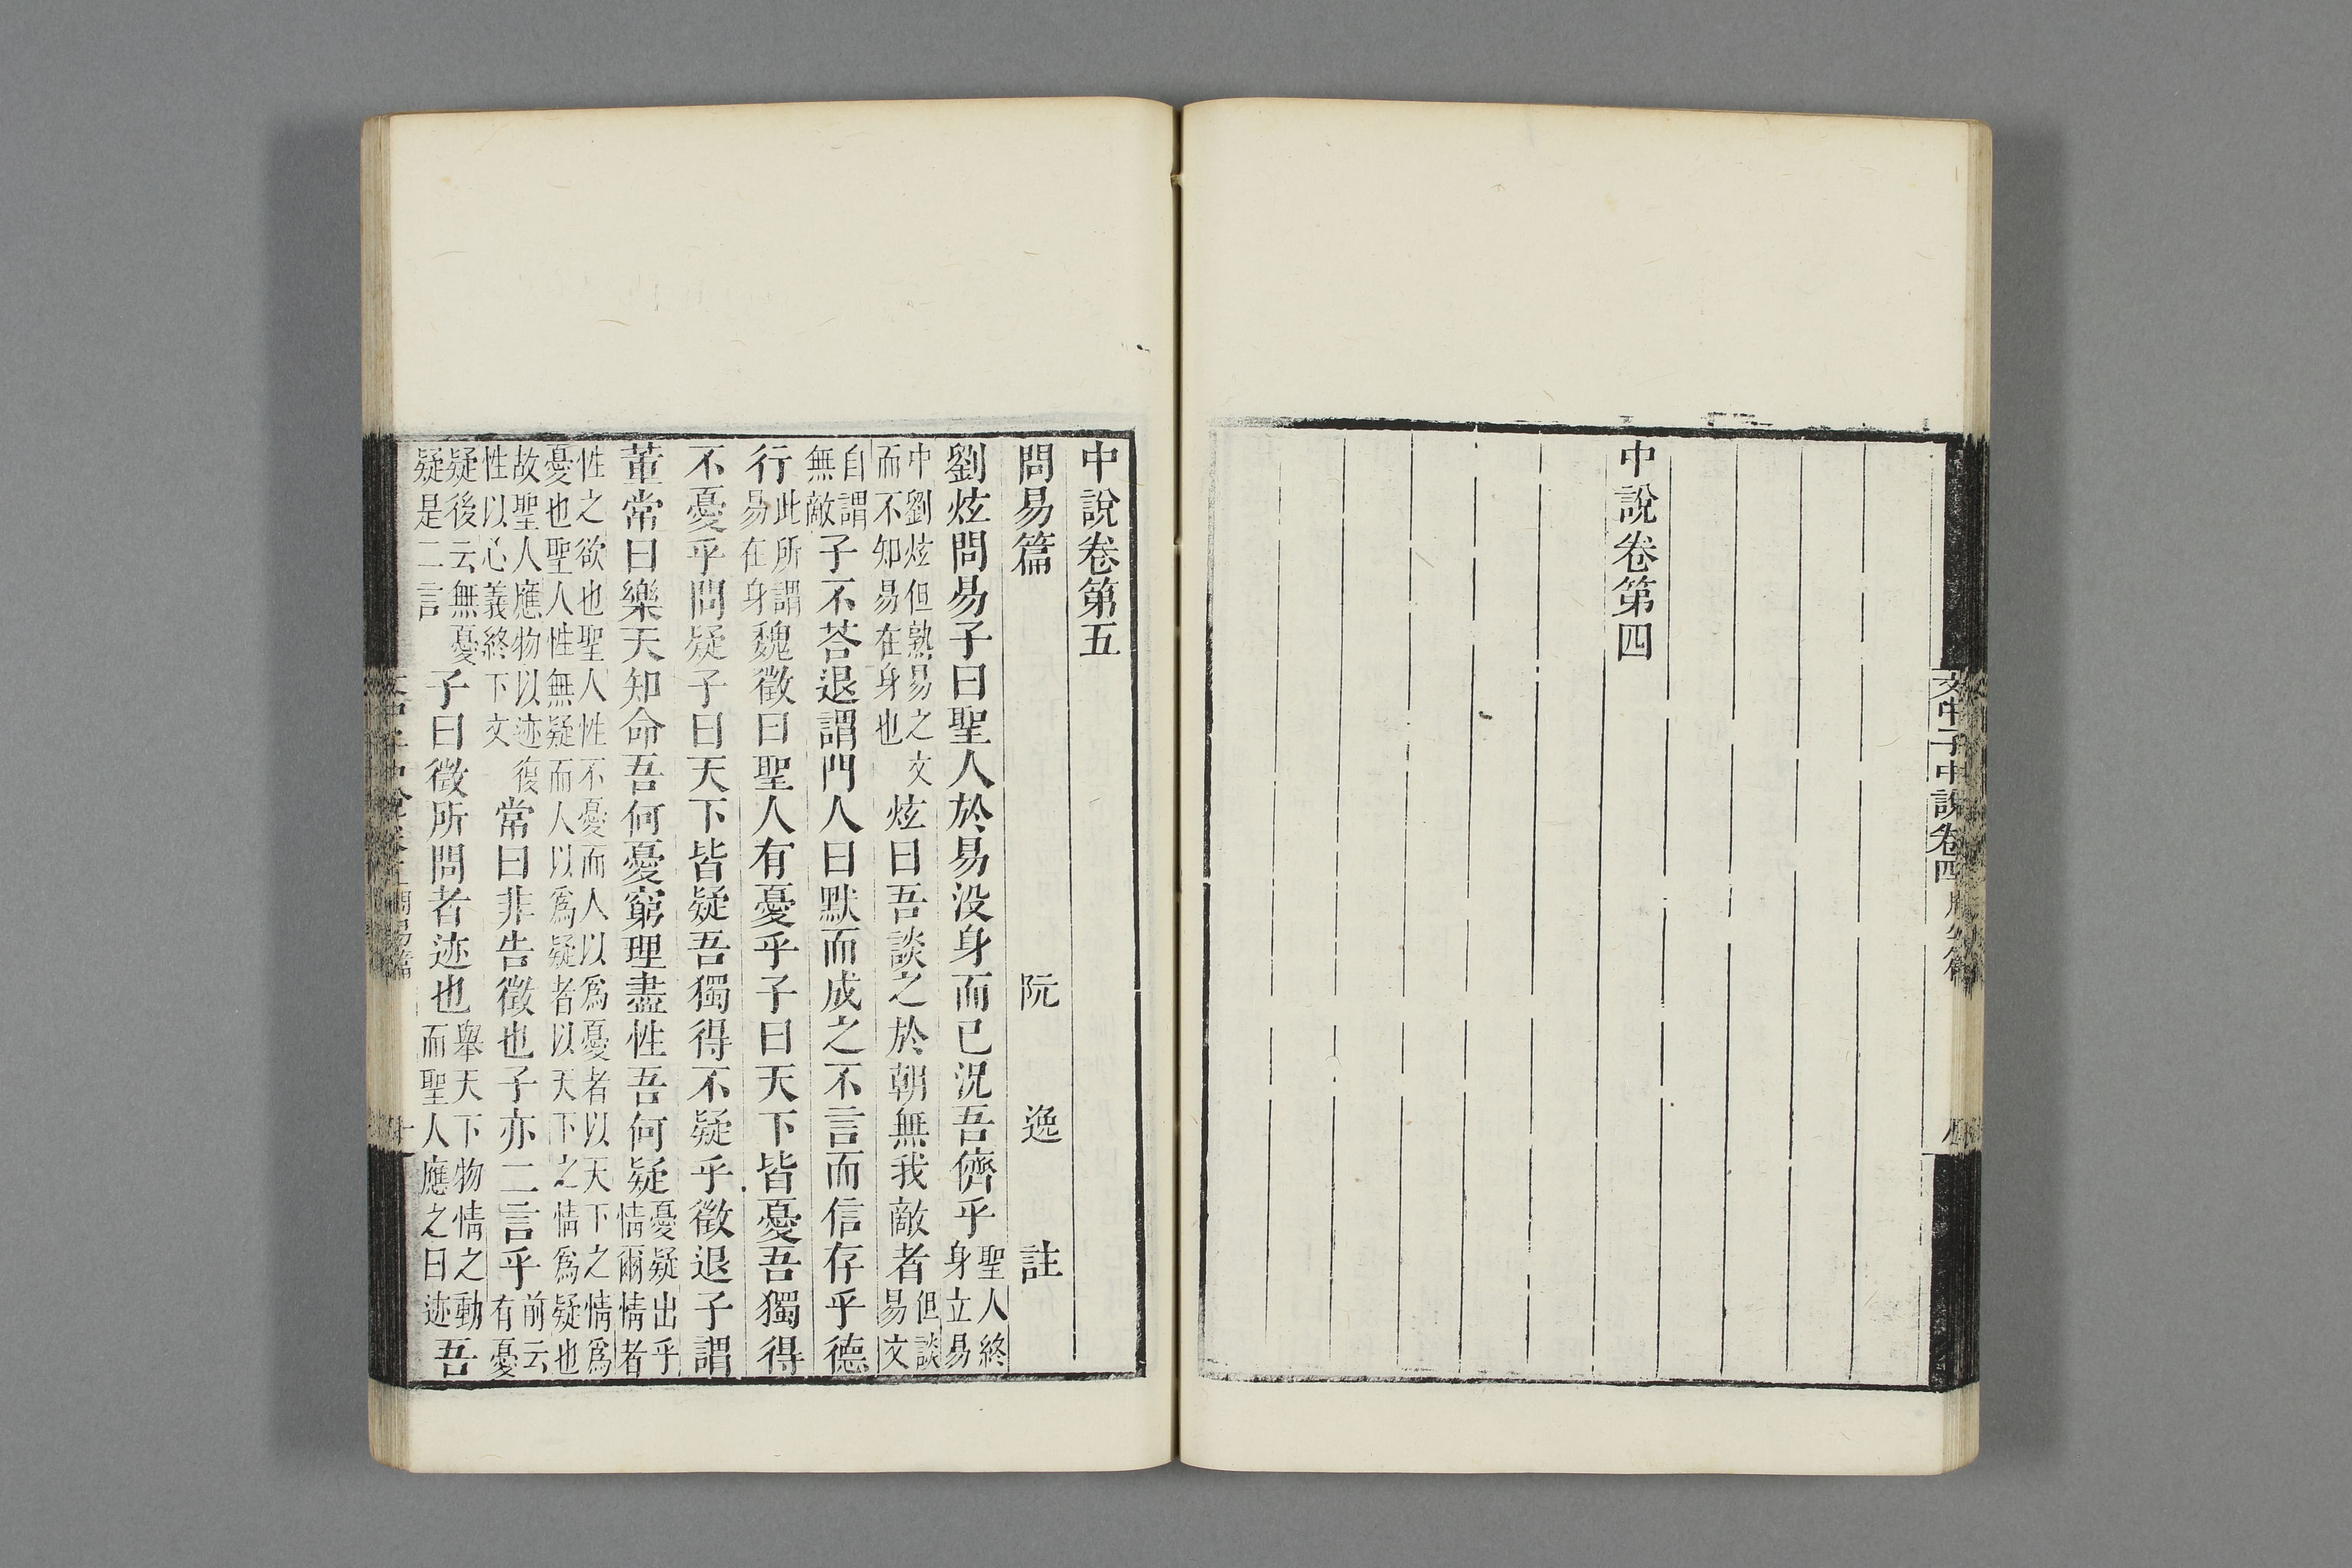 文中子中說卷四
中說卷第四
中說卷第五
問易篇 阮 逸 註
劉炫問易子曰聖人於易没身而已況吾儕乎聖人終身立易
中劉炫但熟易之文而不知易在身也炫曰吾談之於朝無我敵者但談易文
自謂無敵子不荅退謂門人曰默而成之不言而信存乎德
行此所謂易在身魏徵曰聖人有憂乎子曰天下皆憂吾獨得
不憂乎問疑子曰天下皆疑吾獨得不疑乎徵退子謂
董常曰樂天知命吾何憂窮理盡性吾何疑憂疑出乎情爾情者
性之欲也聖人性不憂而人以爲憂者以天下之情爲憂也聖人性無疑而人以爲疑者以天下之情爲疑也
故聖人應物以迹復性以心義終下文常曰非告徵也子亦二言乎前云有憂
疑後云無憂疑是二言子曰徵所問者迹也舉天下物情之動而聖人應之曰迹吾
問易篇